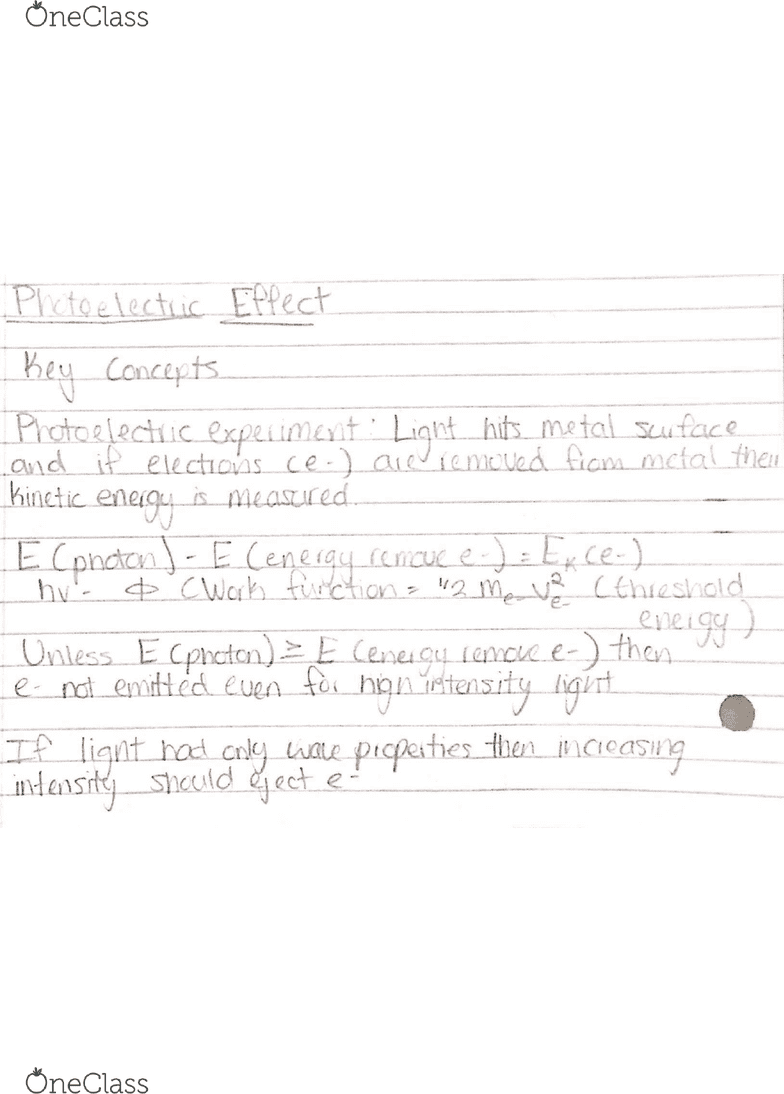 OneClass
Photoelectric Effect
Key Concepts
Photoelectric experiment: Light hits metal surface
and if electrons (e-) are removed from metal then
kinetic energy is measured.
E (photon) - E (energy remove e-) = Eₖ (e-)
hv - Φ (Work function = 1/2 mₑ₋ vₑ₋² (threshold
energy)
Unless E (photon) ≥ E (energy remove e-) then
e- not emitted even for high intensity light
If light had only wave properties then increasing
intensity should eject e-
OneClass